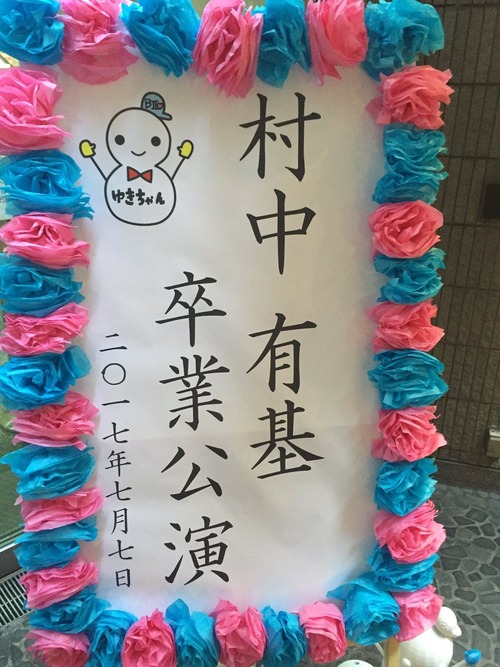 村中 有基
卒業公演
二〇一七年七月七日
ゆきちゃん